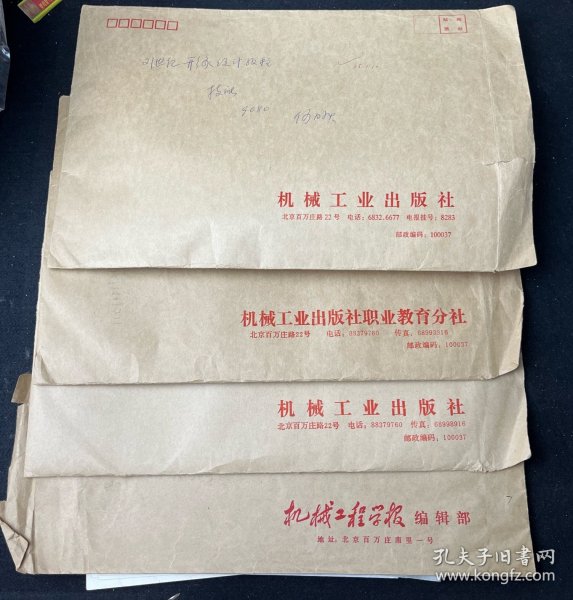 贴 邮
票 处
机械工业出版社
北京百万庄路22号 电话：6832.6677 电报挂号：8283
邮政编码：100037
机械工业出版社职业教育分社
北京百万庄路22号 电话：88379760 传真：68998916
邮政编码：100037
机械工业出版社
北京百万庄路22号 电话：88379760 传真：68998916
邮政编码：100037
机械工程学报 编辑部
地址：北京百万庄南里一号
7
孔夫子旧书网
kongfz.com